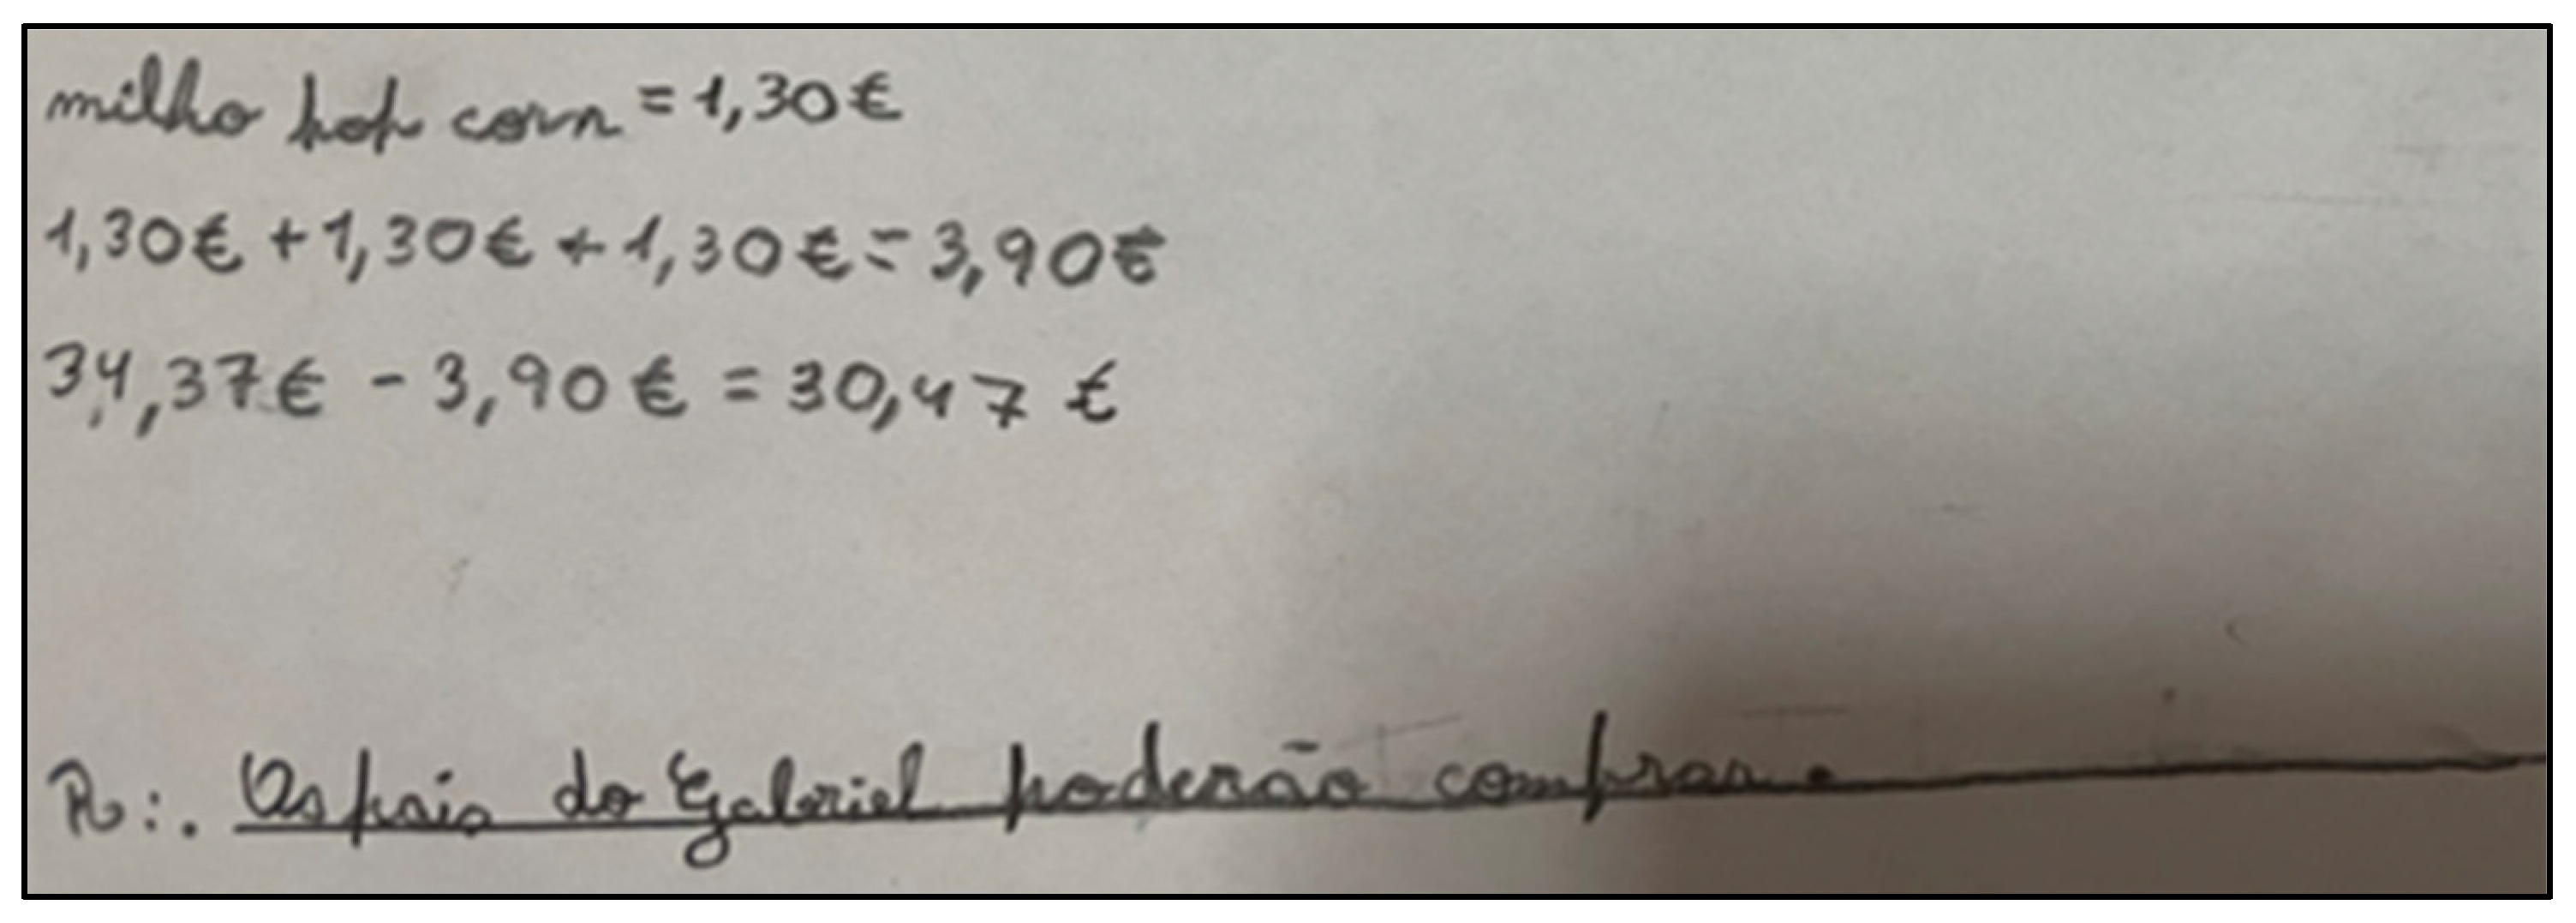 milho pop corn = 1,30€
1,30€ + 1,30€ + 1,30€ = 3,90€
34,37€ - 3,90€ = 30,47 €
R:. Os pais do Gabriel poderão comprar.